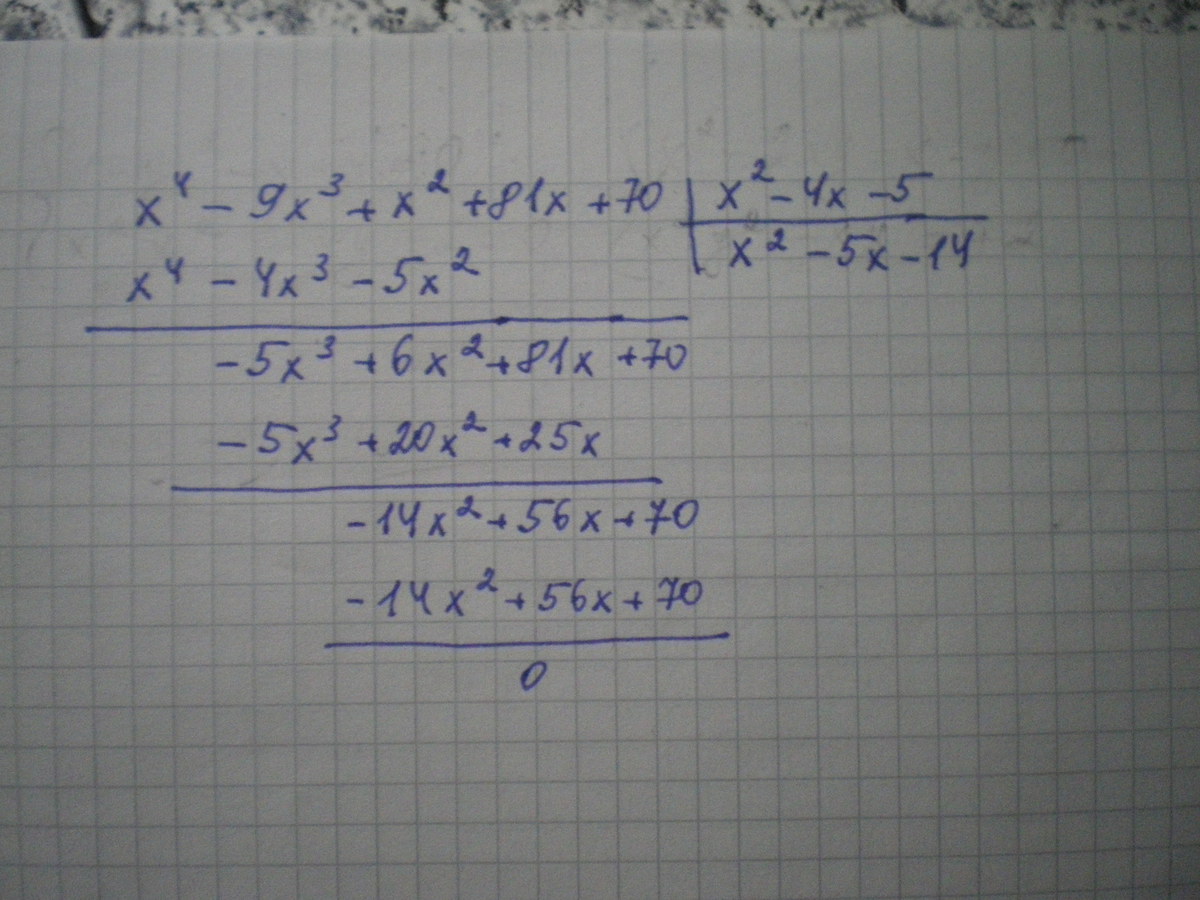 x⁴ - 9x³ + x² + 81x + 70 | x² - 4x - 5
x⁴ - 4x³ - 5x² | x² - 5x - 14
- 5x³ + 6x² + 81x + 70
- 5x³ + 20x² + 25x
- 14x² + 56x + 70
- 14x² + 56x + 70
0